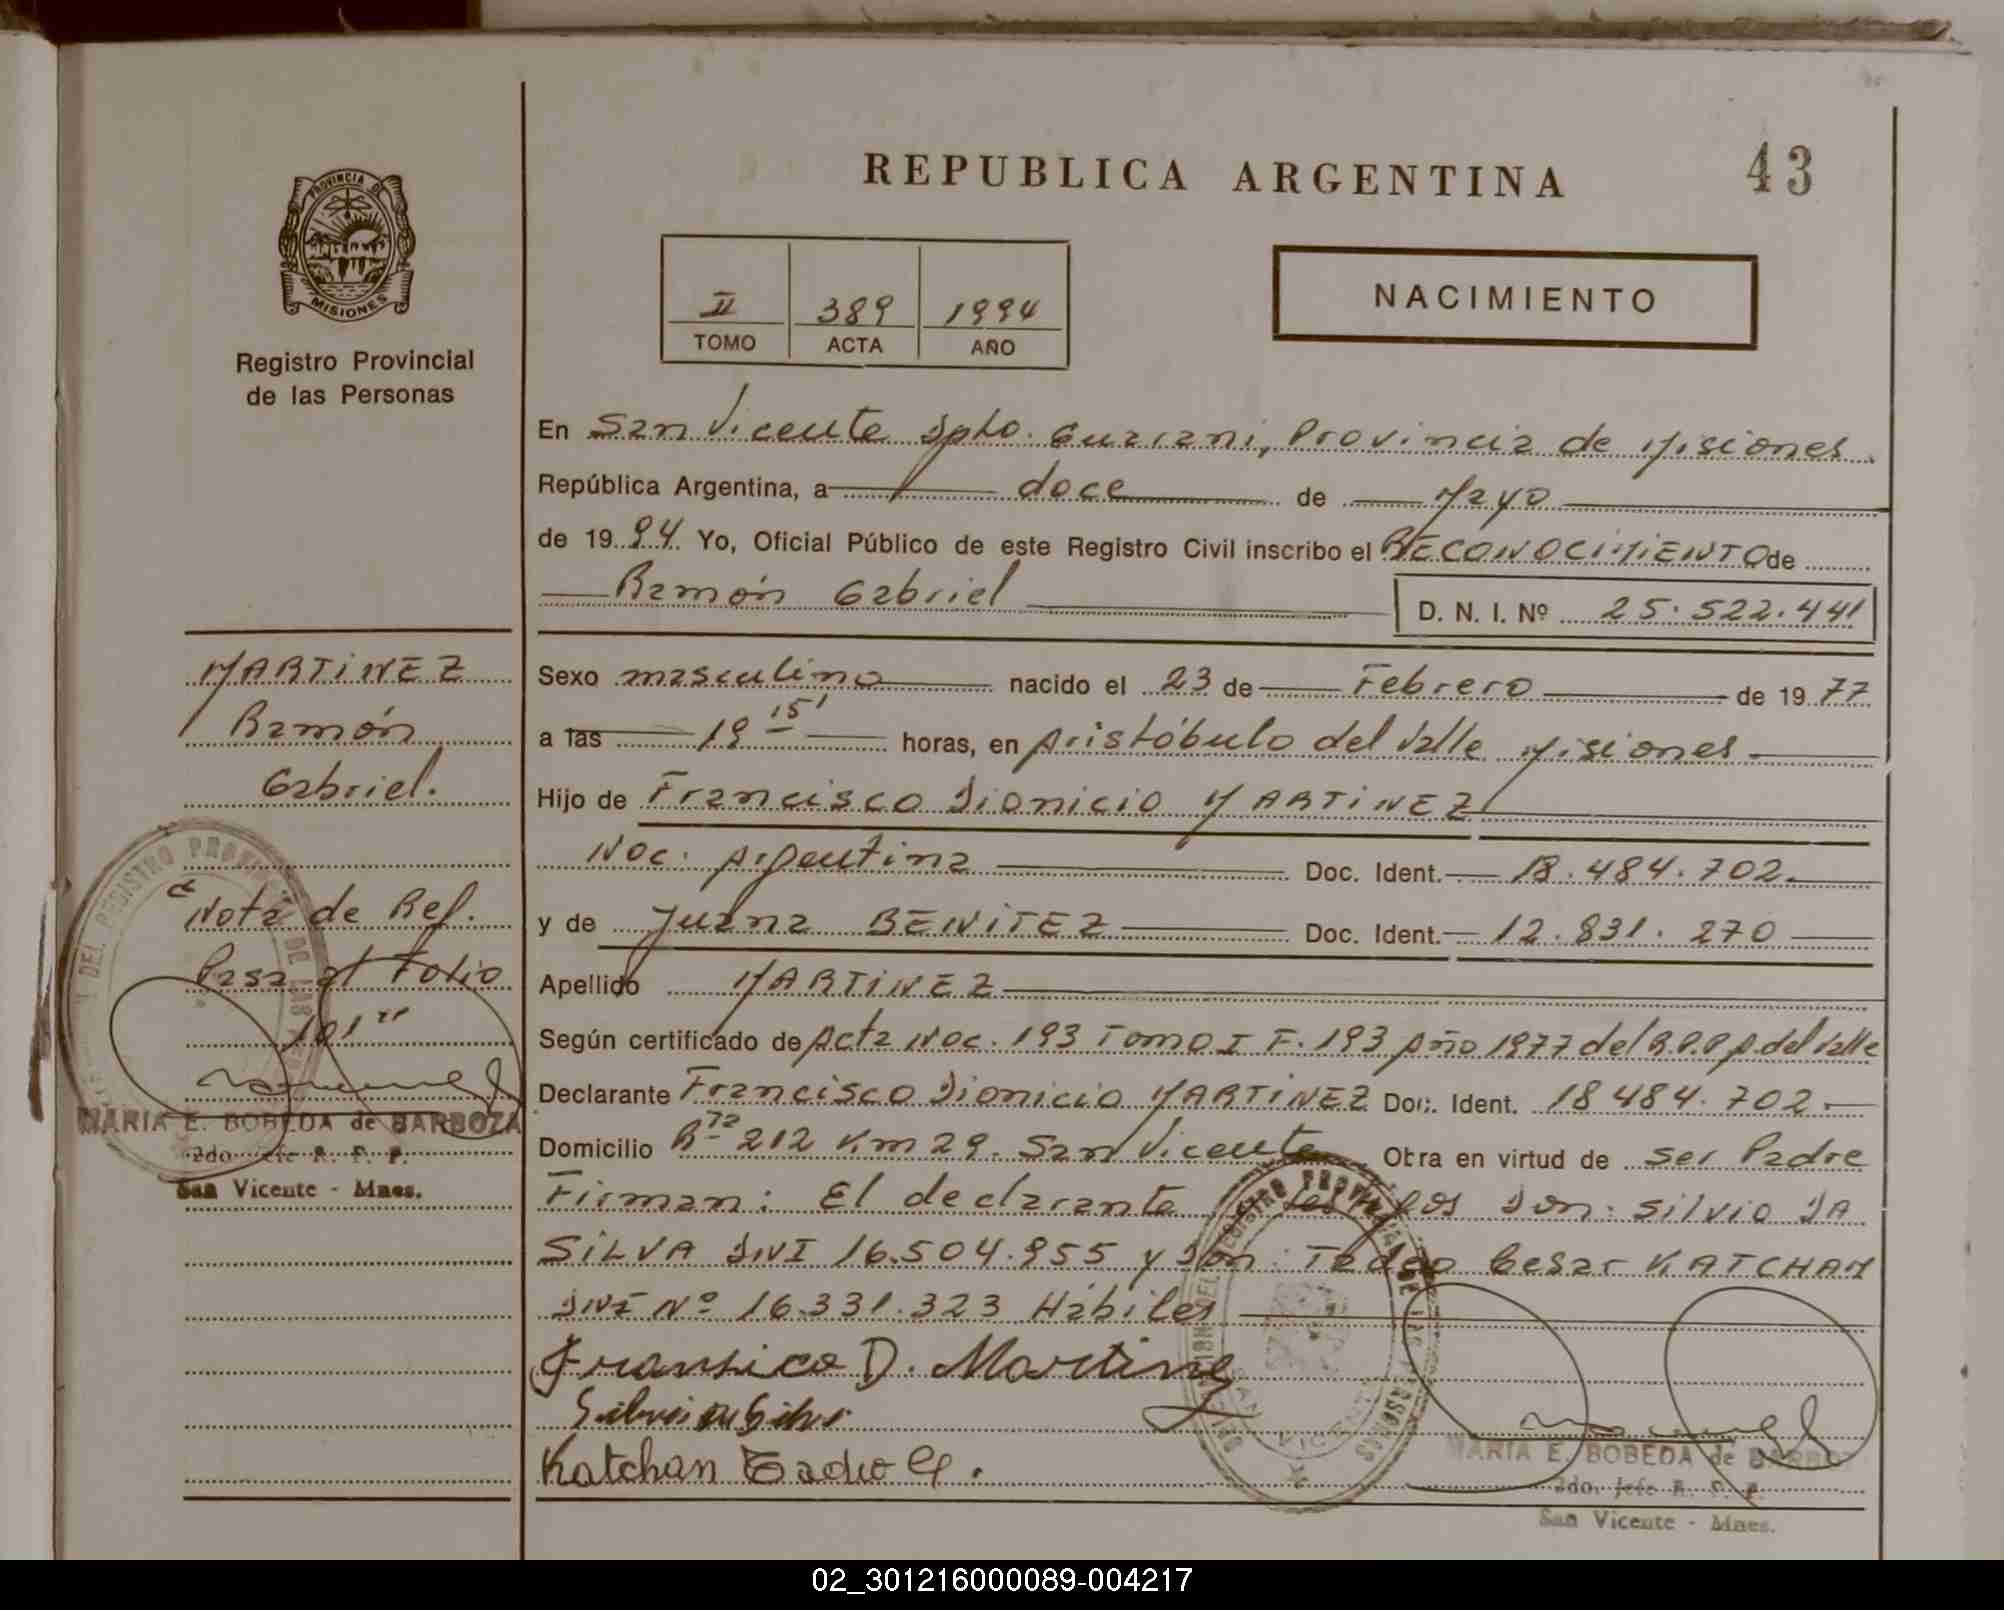 REPUBLICA ARGENTINA
43
PROVINCIA DE
MISIONES
Registro Provincial
de las Personas
II 389 1994
TOMO ACTA AÑO
NACIMIENTO
En San Vicente Dpto. Guarani, Provincia de Misiones.
República Argentina, a doce de Mayo
de 1994 Yo, Oficial Público de este Registro Civil inscribo el RECONOCIMIENTO de
Ramón Gabriel D. N. I. Nº 25.522.441
MARTINEZ
Ramón
Gabriel.
Sexo masculino nacido el 23 de Febrero de 1977
a las 19 15' horas, en Aristóbulo del Valle Misiones
Hijo de Francisco Dionicio MARTINEZ
Nac. Argentina Doc. Ident. 18.484.702.
y de Juana BENITEZ Doc. Ident. 12.831.270
Apellido MARTINEZ
Según certificado de Acta Nac. 193 Tomo I F. 193 Año 1977 del R.P.P A. del Valle
Declarante Francisco Dionicio MARTINEZ Doc. Ident. 18484.702
Domicilio 212 Km 29. San Vicente Obra en virtud de ser Padre
Firman: El declarante testigos Don: Silvio DA
SILVA DNI 16.504.955 y Don: Tadeo Cesar KATCHAN
DNI Nº 16.331.323 Hábiles
Nota de Ref.
Pasa al Folio
101
MARIA E. BOBEDA de BARBOZA
2do. Jefe R. P. P.
San Vicente - Mnes.
Fransico D. Martinez
Katchan Tadeo C.
MARIA E. BOBEDA de BARBOZ
2do. Jefe R. P. P.
San Vicente - Mnes.
02_301216000089-004217